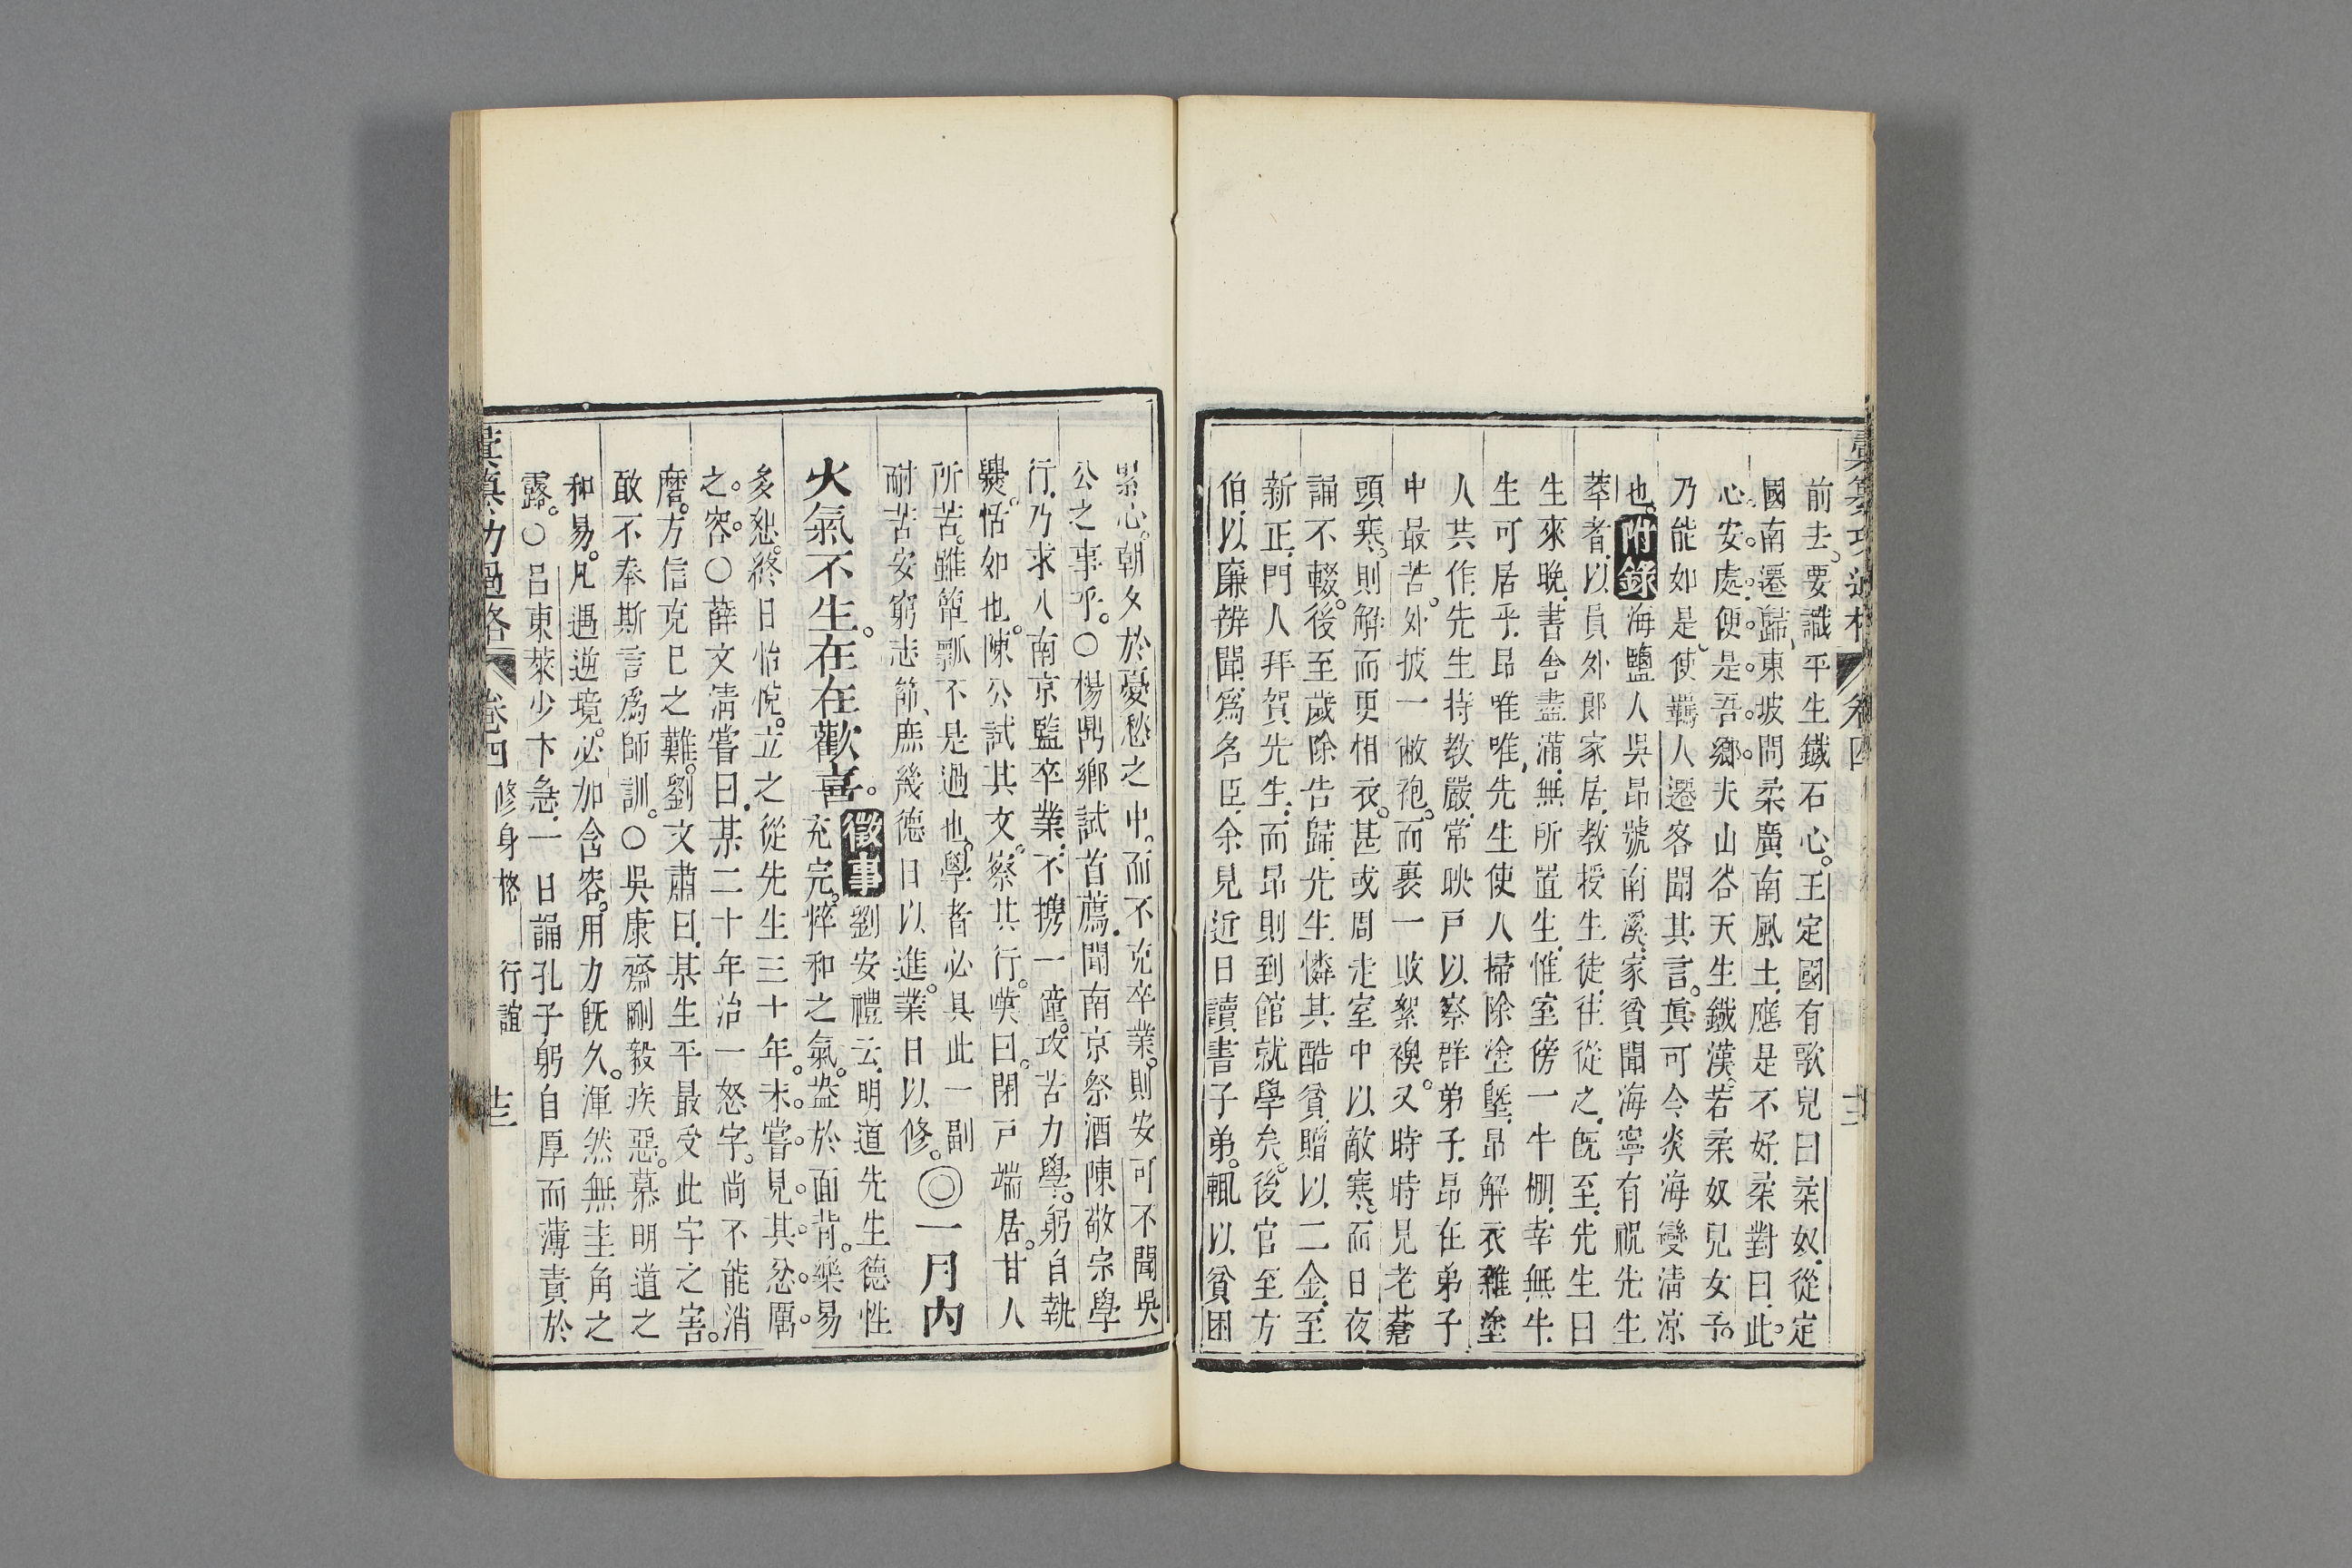 前去要識平生鐵石心王定國有歌兒曰柔奴從定
國南遷歸東坡問柔廣南風土應是不好柔對曰此
心安處便是吾鄉夫山谷天生鐵漢若柔奴兒女子
乃能如是使羈人遷客聞其言真可令炎海變清涼
也附錄海鹽人吳昂號南溪家貧聞海寧有祝先生
萃者以員外郎家居教授生徒往從之既至先生曰
生來晚書舍盡滿無所置生惟室傍一牛棚幸無牛
生可居乎昂唯唯先生使人掃除塗墍昂解衣雜塗
人共作先生持教嚴常映戶以察群弟子昂在弟子
中最苦外披一敝袍而裹一敗絮襖又時時見老蒼
頭寒則解而更相衣甚或周走室中以敵寒而日夜
誦不輟後至歲除告歸先生憐其酷貧贈以二金至
新正門人拜賀先生而昂則到館就學矣後官至方
伯以廉辨聞為名臣余見近日讀書子弟輒以貧困
累心朝夕於憂愁之中而不克卒業則安可不聞吳
公之事乎○楊鼎鄉試首薦聞南京祭酒陳敬宗學
行乃求入南京監卒業不攜一僮攻苦力學躬自執
爨恬如也陳公試其文察其行嘆曰閉戶端居甘人
所苦雖簞瓢不是過也學者必具此一副
耐苦安窮志節庶幾德日以進業日以修◎一月內
火氣不生在在歡喜徵事劉安禮云明道先生德性
充完粹和之氣盎於面背樂易
多恕終日怡悅立之從先生三十年未嘗見其忿厲
之容○薛文清嘗曰某二十年治一怒字尚不能消
磨方信克己之難劉文肅曰某生平最受此字之害
敢不奉斯言為師訓○吳康齋剛毅疾惡慕明道之
和易凡遇逆境必加含容用力既久渾然無圭角之
露○呂東萊少卞急一日誦孔子躬自厚而薄責於
彙纂功過格 卷四 修身格 行誼 十三